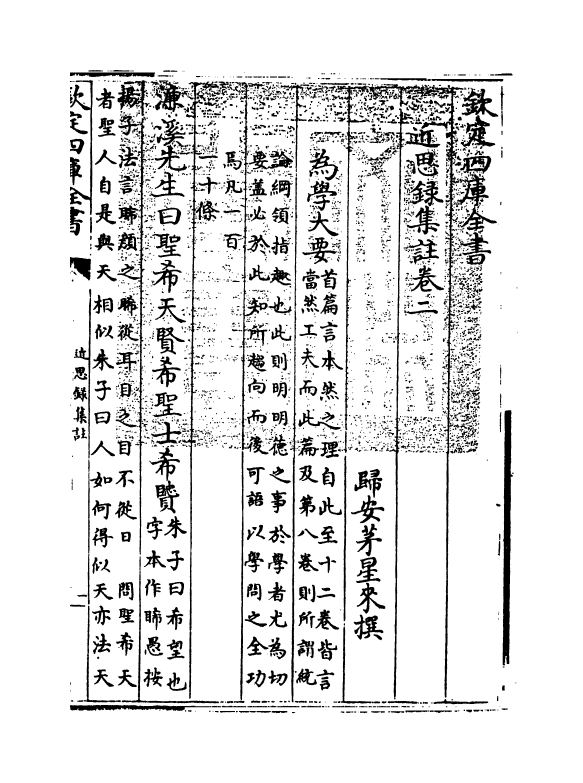 欽定四庫全書
近思録集註卷二
歸安茅星來撰
為學大要
首篇言本然之理自此至十二卷皆言
當然工夫而此篇及第八卷則所謂統
論綱領指趣也此則明明德之事於學者尤為切
要蓋必於此知所趨向而後可語以學問之全功
焉凡一百
一十條
濓溪先生曰聖希天賢希聖士希賢
朱子曰希望也
字本作睎愚桉
揚子法言睎顔之睎從耳目之目不從日　問聖希天
者聖人自是與天相似朱子曰人如何得似天亦法天
欽定四庫全書
近思録集註
一